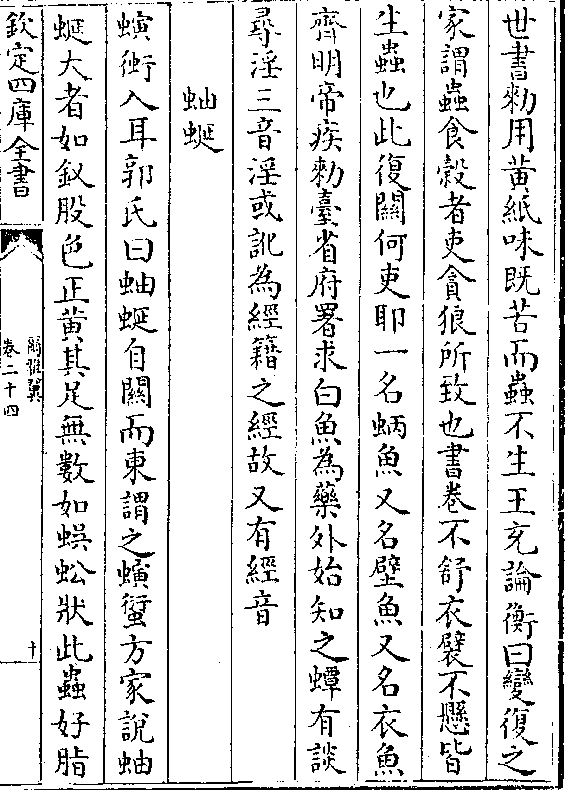 世書勑用黄紙味既苦而蟲不生王充論衡曰變復之
家謂蟲食穀者吏貪狼所致也書卷不舒衣襞不懸皆
生蟲也此復關何吏耶一名蛃魚又名壁魚又名衣魚
齊明帝疾勑臺省府署求白魚為藥外始知之蟫有談
尋淫三音淫或訛為經籍之經故又有經音
蚰蜒
螾衝入耳郭氏曰蚰蜒自關而東謂之螾䗔方家說蚰
蜒大者如釵股色正黄其足無數如蜈蚣狀此蟲好脂
欽定四庫全書
爾雅翼
卷二十四
十